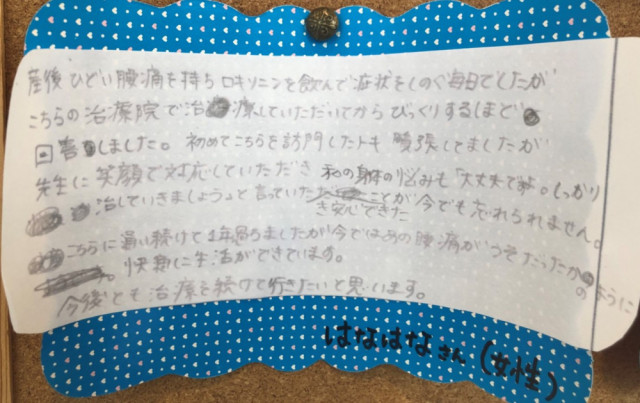 産後ひどい腰痛を持ちロキソニンを飲んで症状をしのぐ毎日でしたが
こちらの治療院で治療していただいてからびっくりするほど
回害しました。初めてこちらを訪門したトキ 緊張してましたが
先生に笑顔で対応していただき 私の身体の悩みも「大丈夫ですよ。しっかり
治していきましょう」と言っていただき安心できたことが今でも忘れられません。
こちらに通い続けて1年過ちましたが今ではあの腰痛がうそだったかのように
快適に生活ができています。
今後とも治療を続けて行きたいと思います。
はなはなさん(女性)